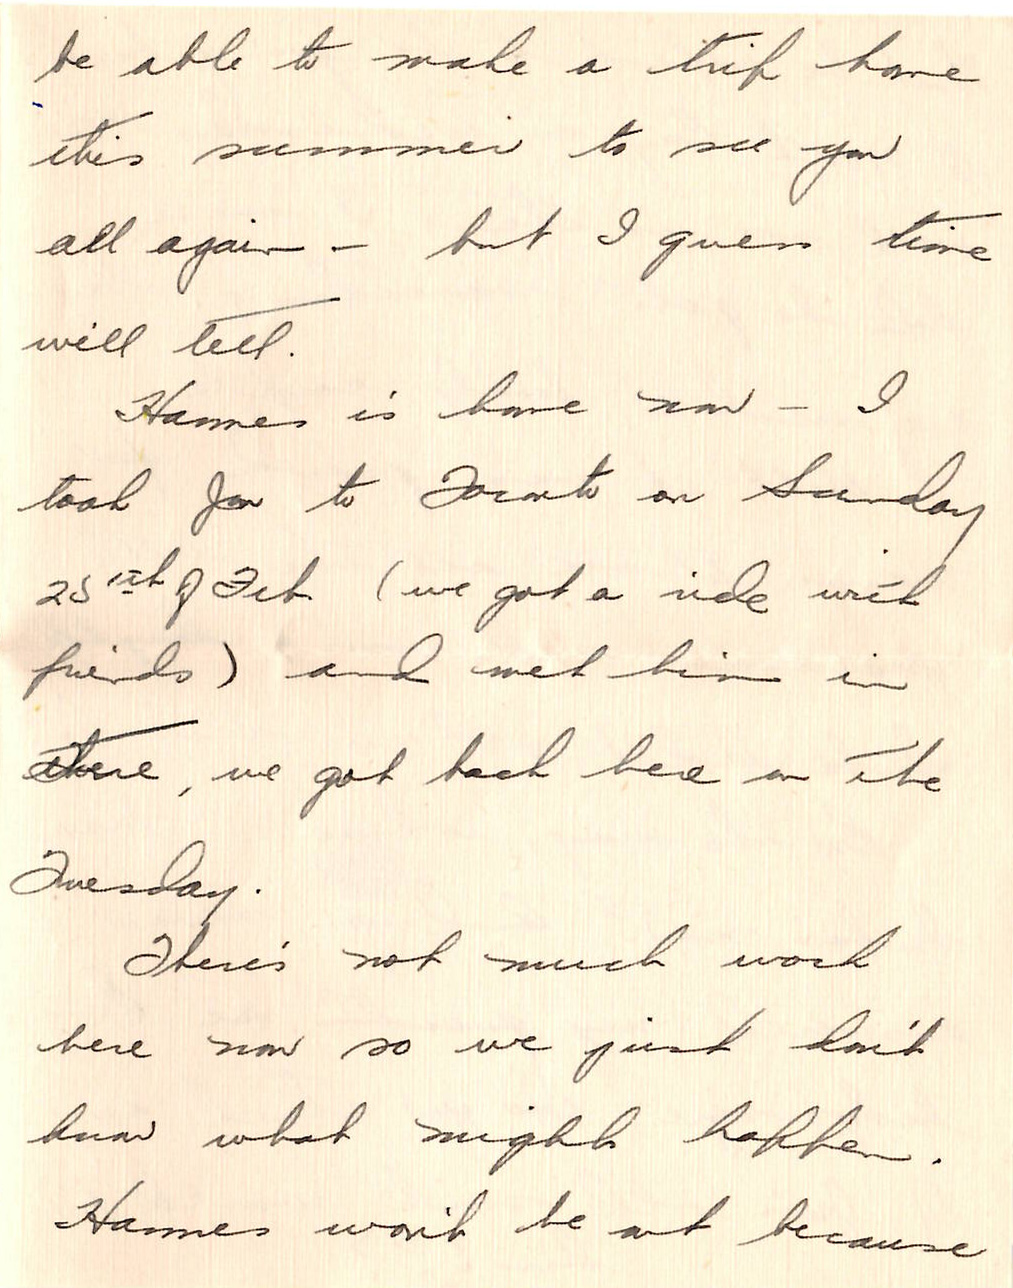 be able to make a trip home
this summer to see you
all again – but I guess time
will tell.
Hannes is home now – I
took Jon to Toronto on Sunday
25th of Feb (we got a ride with
friends) and met him in
there, we got back here on the
Tuesday.
There's not much work
here now so we just don't
know what might happen.
Hannes won't be out because